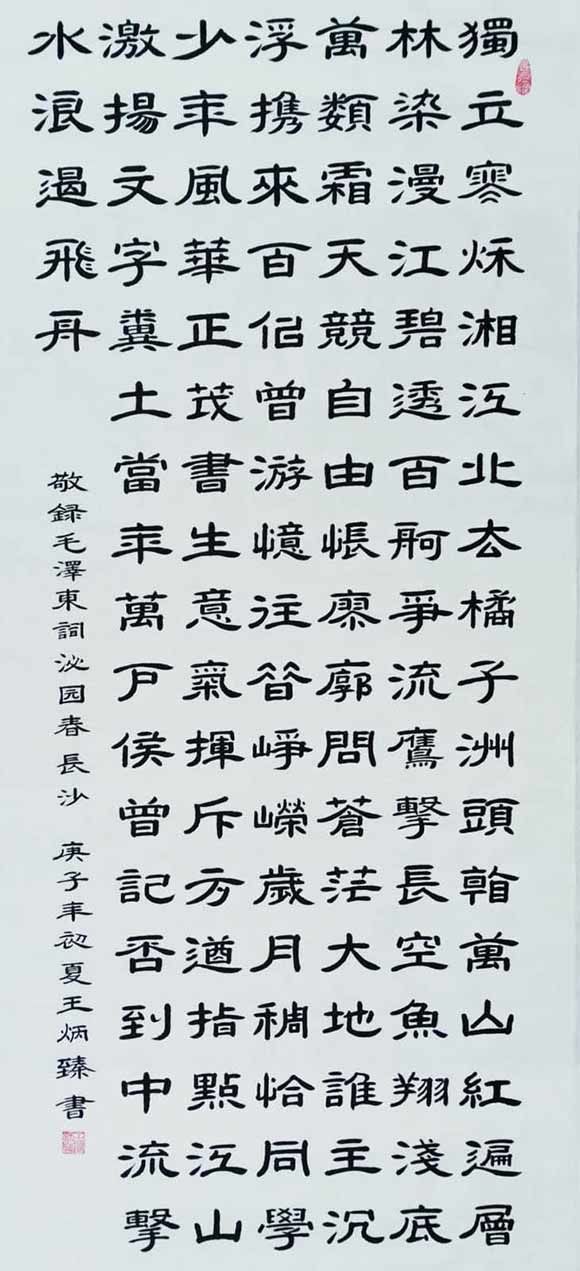 獨立寒秌湘江北去橘子洲頭看萬山紅遍層
林染漫江碧透百舸爭流鷹擊長空魚翔淺底
萬類霜天競自由悵廖廓問蒼茫大地誰主沉
浮携來百侶曾游憶往昔崢嶸歲月稠恰同學
少年風華正茂書生意氣揮斥方遒指點江山
激揚文字糞土當年萬戶侯曾記否到中流擊
水浪遏飛舟
敬録毛澤東詞沁园春長沙 庚子年初夏王炳臻書